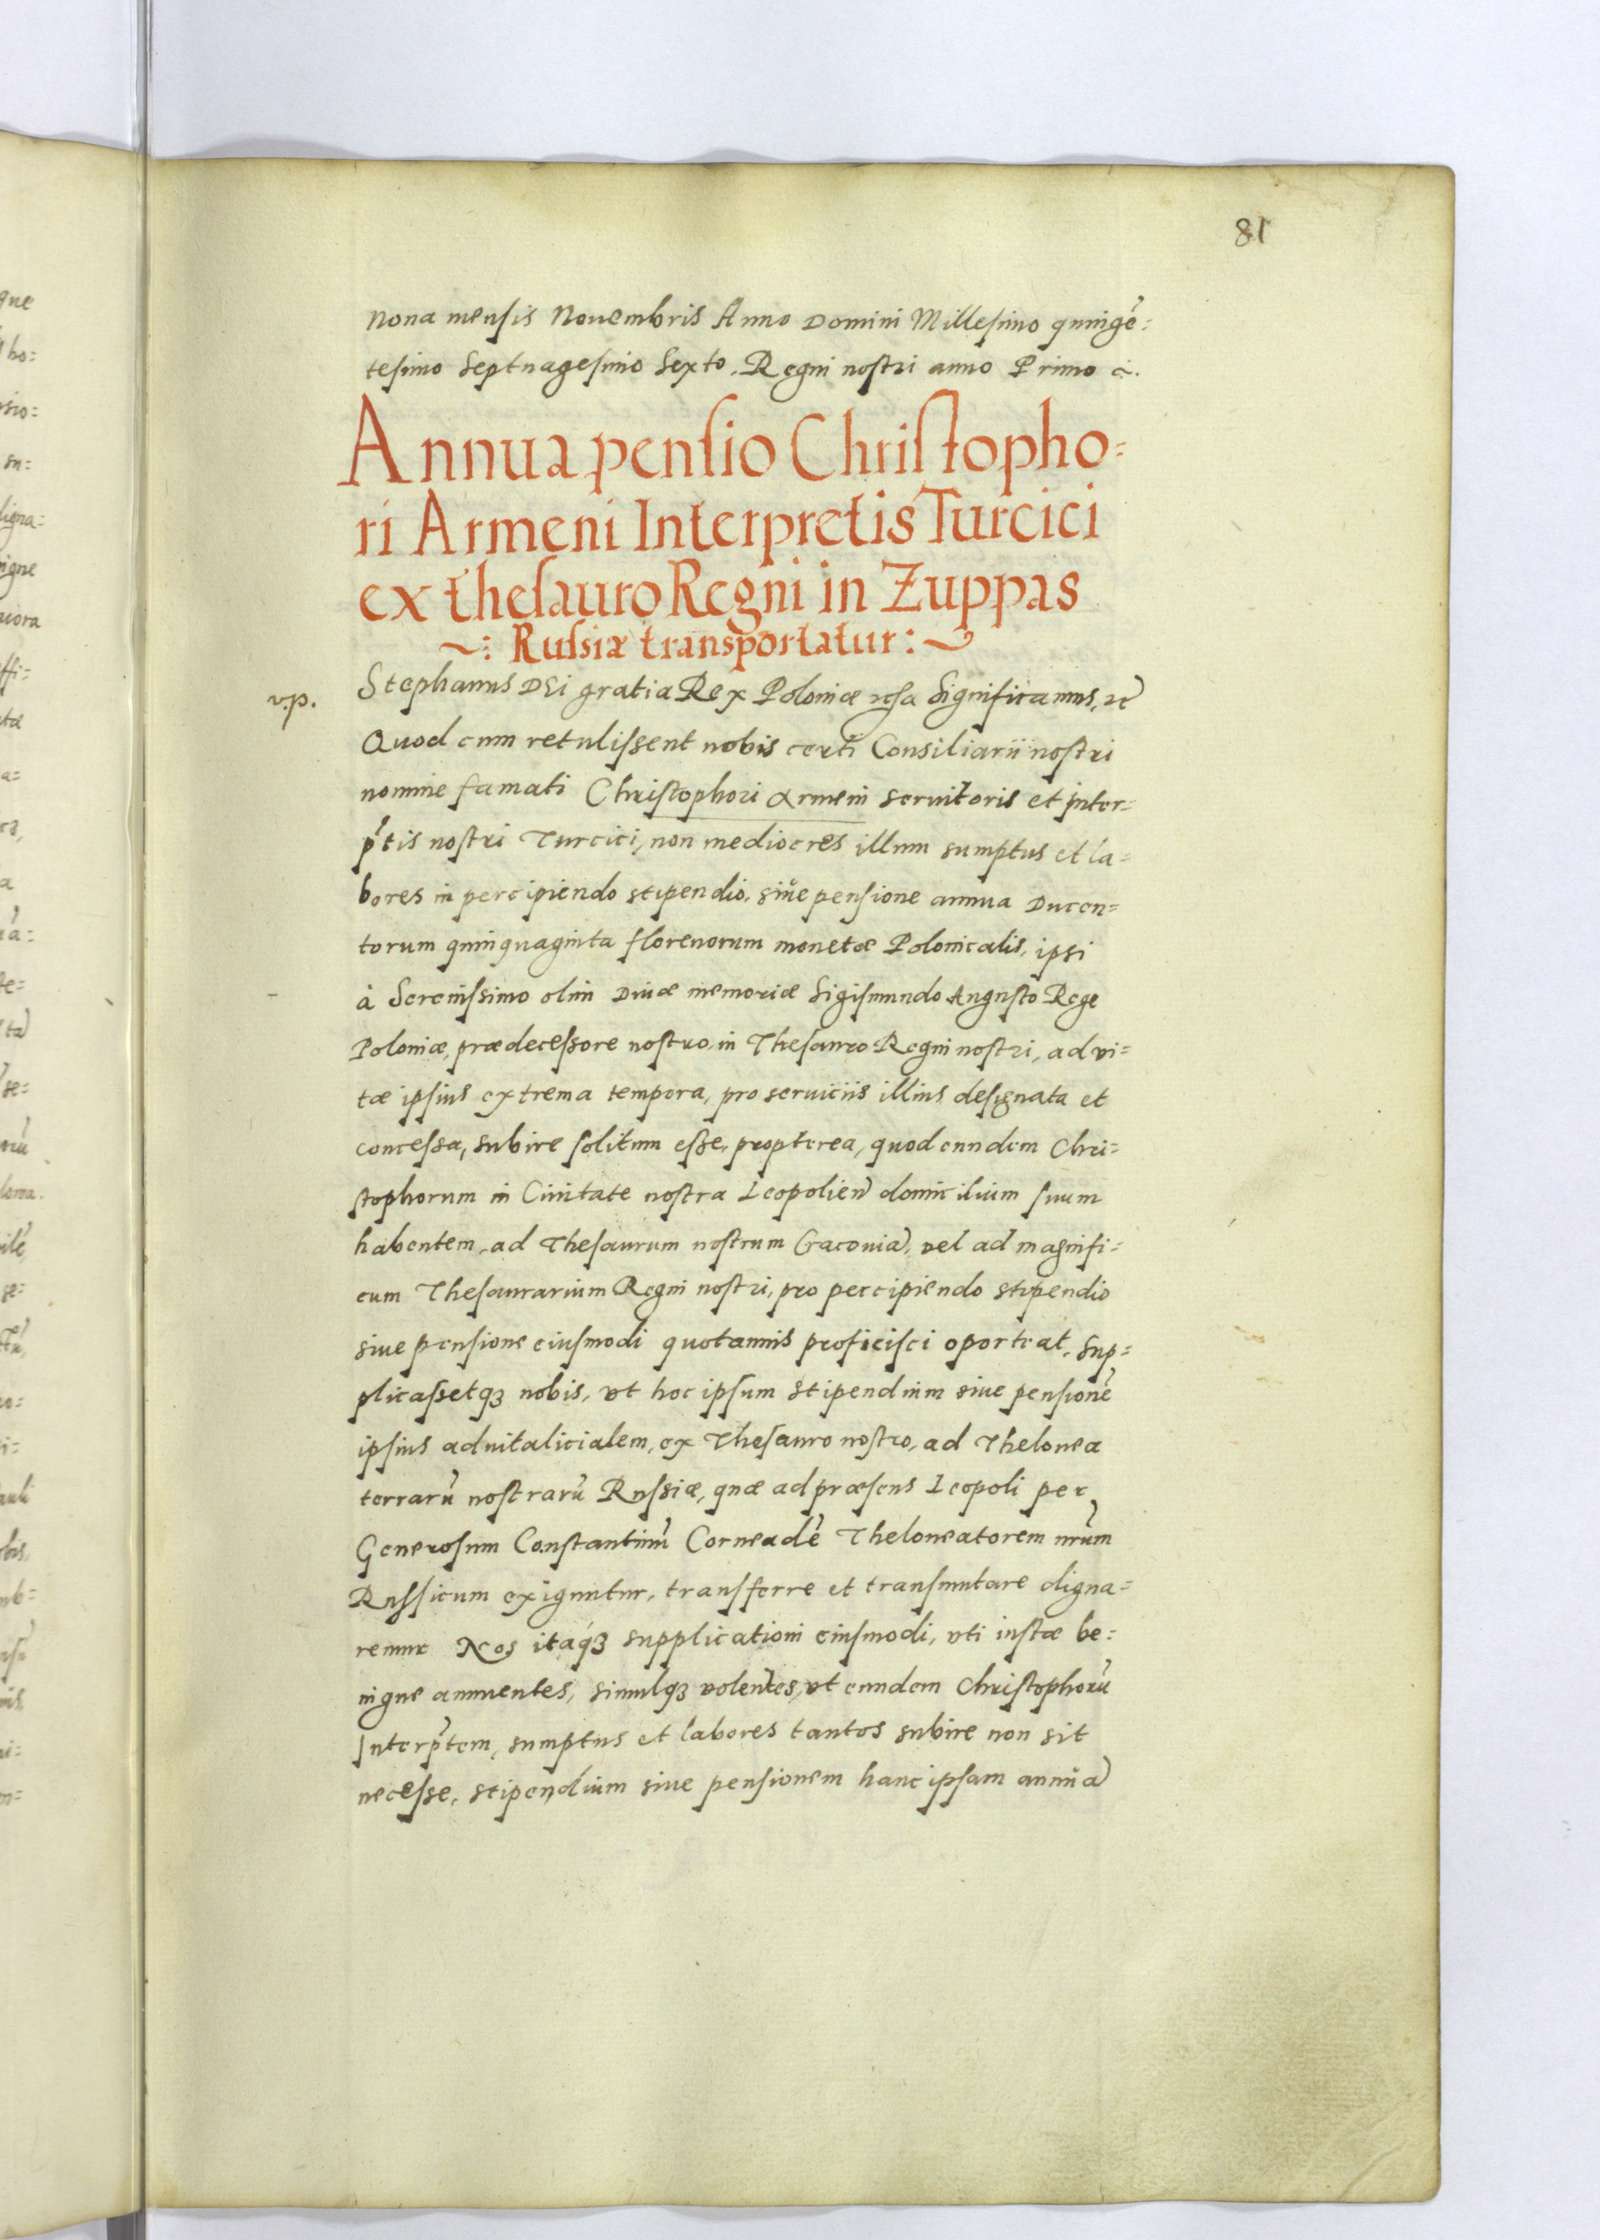 81
nona mensis Nouembris Anno Domini Millesimo quingẽ=
tesimo Septuagesimo Sexto. Regni nostri anno Primo &.
Annua pensio Christopho=
ri Armeni Interpretis Turcici
ex thesauro Regni in Zuppas
Russiæ transportatur:
v.p.
Stephanus DEi gratia Rex Poloniæ Significamus, &c
Quod cum retulissent nobis certi Consiliarii nostri
nomine famati Christophori Armeni seruitoris et inter=
p̃tis nostri Turcici, non mediocres illum sumptus et la=
bores in percipiendo stipendio, siue pensione annua Ducen=
torum quinquaginta florenorum monetæ Polonicalis, ipsi
à Serenissimo olim Diuæ memoriæ Sigismundo Augusto Rege
Poloniæ, prædecessore nostro, in Thesauro Regni nostri, ad vi=
tæ ipsius extrema tempora, pro seruiciis illius designata et
concessa, subire solitum esse, propterea, quod eundem Chri=
stophorum in Ciuitate nostra Leopolien̄ domicilium suum
habentem, ad Thesaurum nostrum Cracouiā, vel ad magnifi=
cum Thesaurarium Regni nostri, pro percipiendo stipendio
siue pensione eiusmodi quotannis proficisci oporteat, Sup=
plicassetqꝫ nobis, vt hoc ipsum stipendium siue pensionẽ
ipsius aduitalicialem, ex Thesauro nostro, ad Thelonea
terrarũ nostrarũ Russiæ, quæ ad præsens Leopoli per
Generosum Constantinũ Corneadẽ Theloneatorem nr̃um
Russicum exiguntur, transferre et transmutare digna=
remur Nos itaqꝫ supplicationi eiusmodi, vti iustæ be=
nigne annuentes, simulqꝫ volentes, vt eundem Christophorũ
Interp̃tem, sumptus et labores tantos subire non sit
necesse, stipendium siue pensionem hanc ipsam annuā